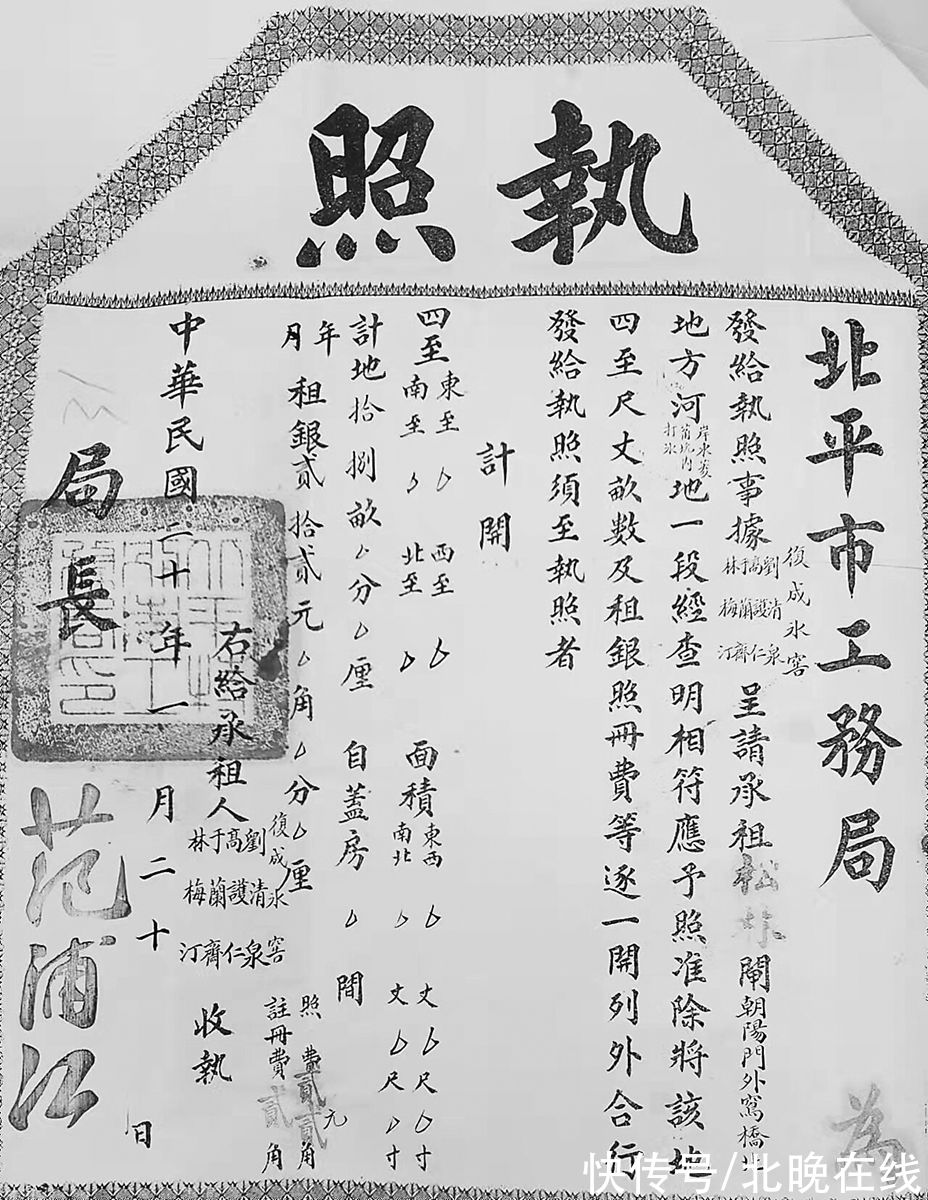 執照
北平市工務局為
發給執照事據復成冰窖劉清泉高護仁于蘭齊林梅汀呈請承租松林閘朝陽門外窩橋北
地方河岸水葦坑內打冰地一段經查明相符應予照准除將該地
四至尺丈畝數及租銀照冊費等逐一開列外合行
發給執照須至執照者
計開
四至東至西至面積東西丈尺寸
南至北至南北丈尺寸
計地拾捌畝分厘自蓋房間
年月租銀貳拾貳元角分厘
照費貳元貳角
註冊費貳角
右給承租人復成冰窖劉清泉高護仁于蘭齊林梅汀收執
中華民國二十年一月二十日
局長范浦江
快传号/北晚在线